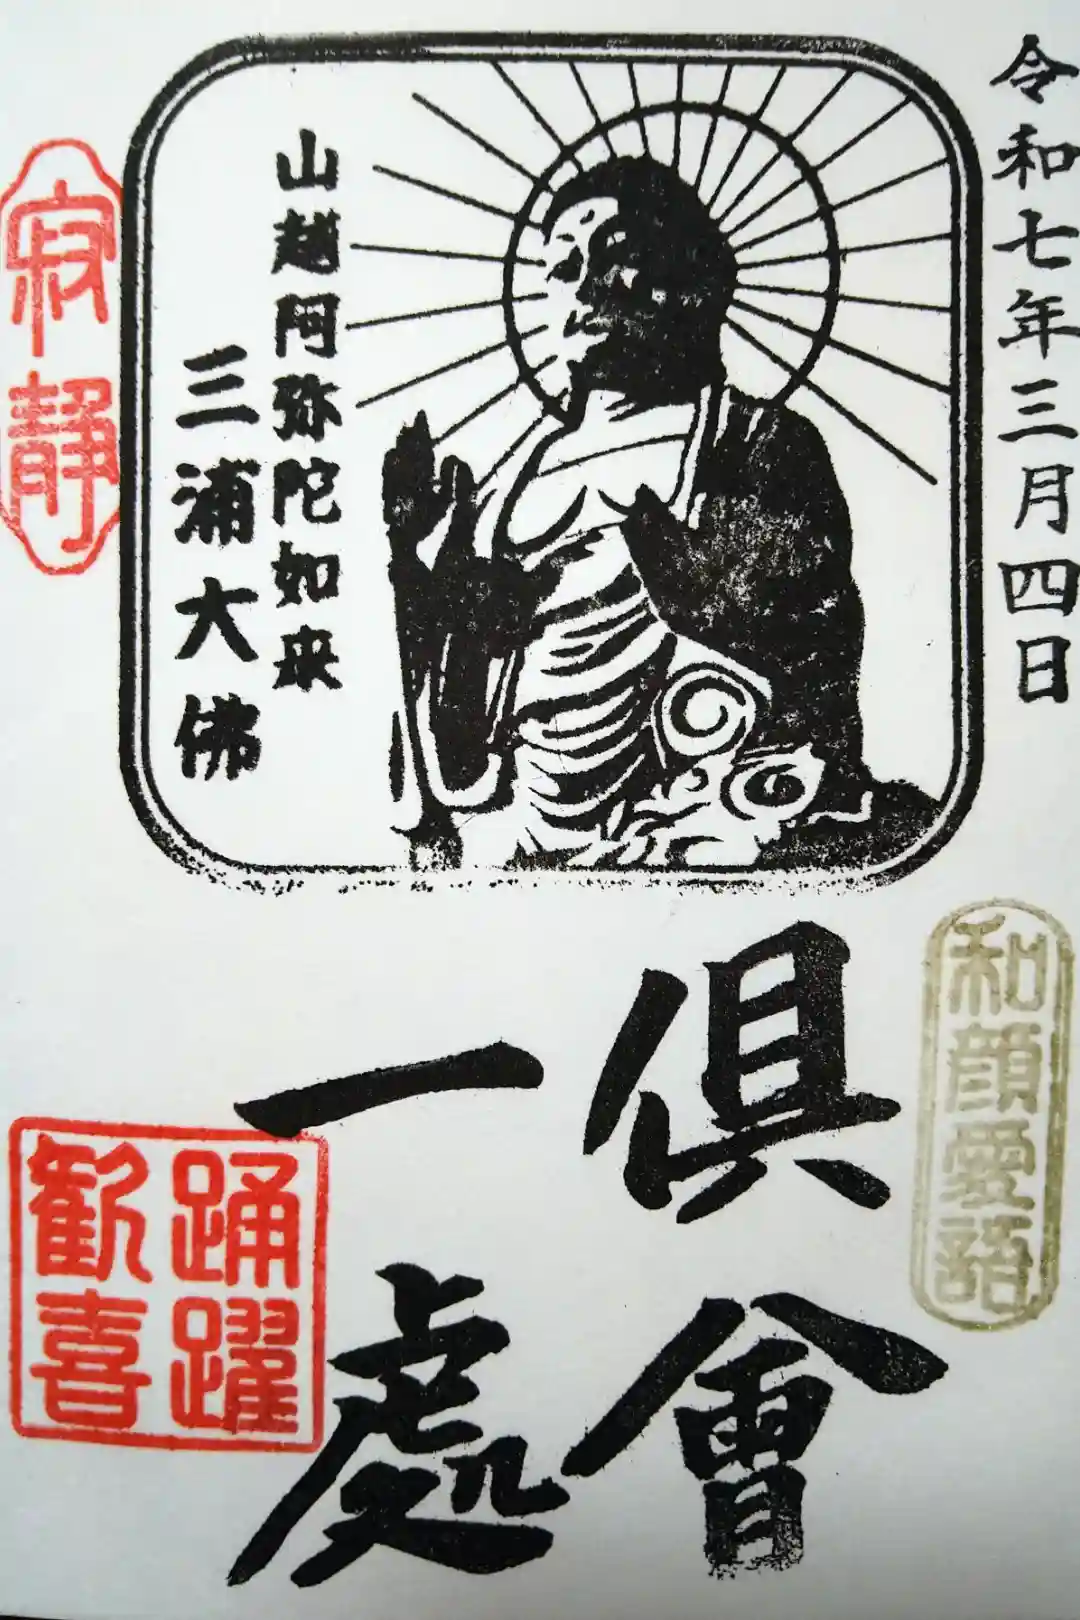 令和七年三月四日
山越阿弥陀如来
三浦大佛
寂静
和顔愛語
俱會
一處
踊躍
歓喜